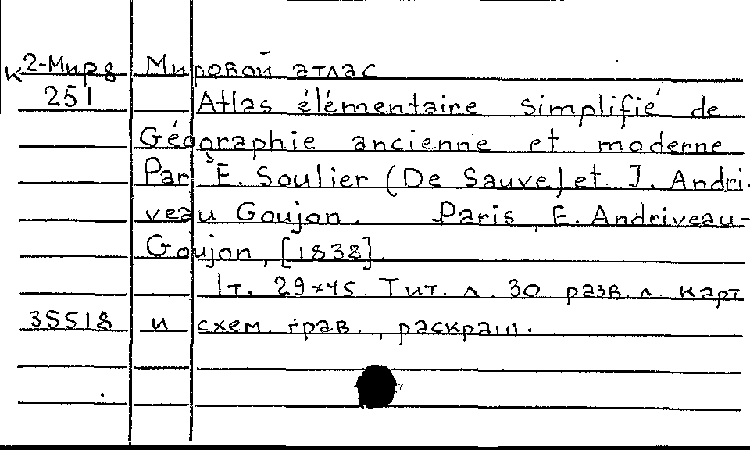 К 2-Мир8 Мировой атлас
251 Atlas élémentaire simplifié de
Géographie ancienne et moderne
Par E. Soulier (De Sauve) et J. Andri-
veau Goujon. Paris, E. Andriveau-
Goujon, [1838].
1т. 29×45 Тит. л. 30 разв. л. карт
35518 и схем. грав., раскраш.